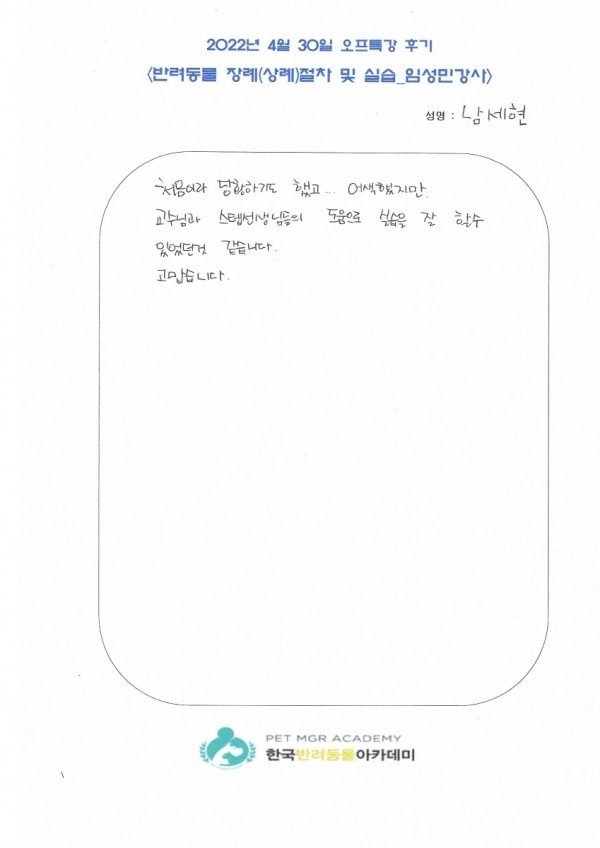 2022년 4월 30일 오프특강 후기
<반려동물 장례(상례)절차 및 실습_임성민강사>
성명 : 남세현
처음이라 당황하기도 했고... 어색했지만.
교수님과 스텝선생님들의 도움으로 실습을 잘 할수
있었던것 같습니다.
고맙습니다.
PET MGR ACADEMY
한국반려동물아카데미